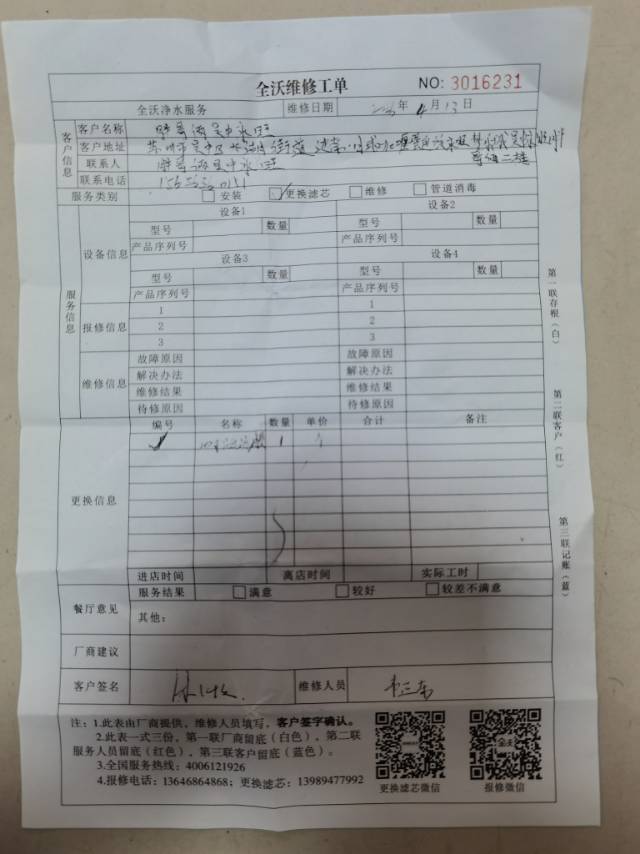 全沃维修工单
NO: 3016231
全沃净水服务 维修日期 年 4 月 13 日
客户信息
客户名称
客户地址 苏州市吴中区 街道
联系人
联系电话
服务类别 安装 更换滤芯 维修 管道消毒
服务信息
设备信息
设备1 设备2
型号 数量 型号 数量
产品序列号 产品序列号
设备3 设备4
型号 数量 型号 数量
产品序列号 产品序列号
报修信息
1 1
2 2
3 3
维修信息
故障原因 故障原因
解决办法 解决办法
维修结果 维修结果
待修原因 待修原因
更换信息
编号 名称 数量 单价 合计 备注
1
进店时间 离店时间 实际工时
餐厅意见
服务结果 满意 较好 较差不满意
其他:
厂商建议
客户签名 维修人员
注: 1.此表由厂商提供, 维修人员填写, 客户签字确认。
2.此表一式三份, 第一联厂商留底(白色), 第二联
服务人员留底(红色), 第三联客户留底(蓝色)。
3.全国服务热线: 4006121926
4.报修电话: 13646864868; 更换滤芯: 13989477992
更换滤芯微信 报修微信
第一联存根(白)
第二联客户(红)
第三联记账(蓝)